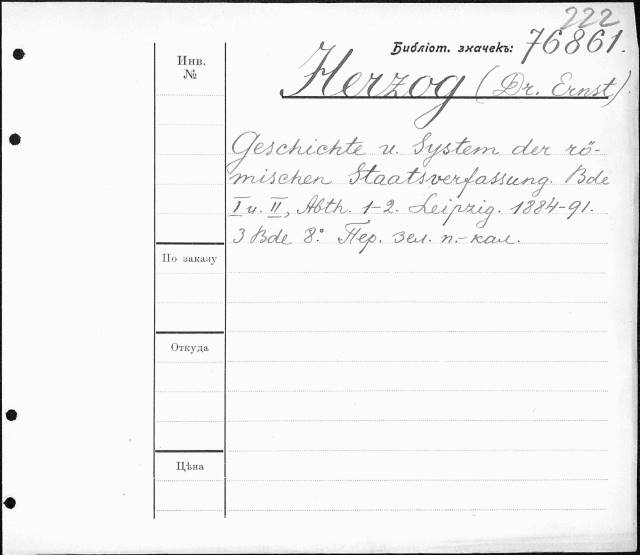 222
Библіот. значекъ: 76861.
Инв.
№
Herzog (Dr. Ernst).
Geschichte u. System der rö-
mischen Staatsverfassung. Bde
I u. II, Abth. 1-2. Leipzig. 1884-91.
3 Bde 8° Пер. зел. п.-кал.
По заказу
Откуда
Цѣна